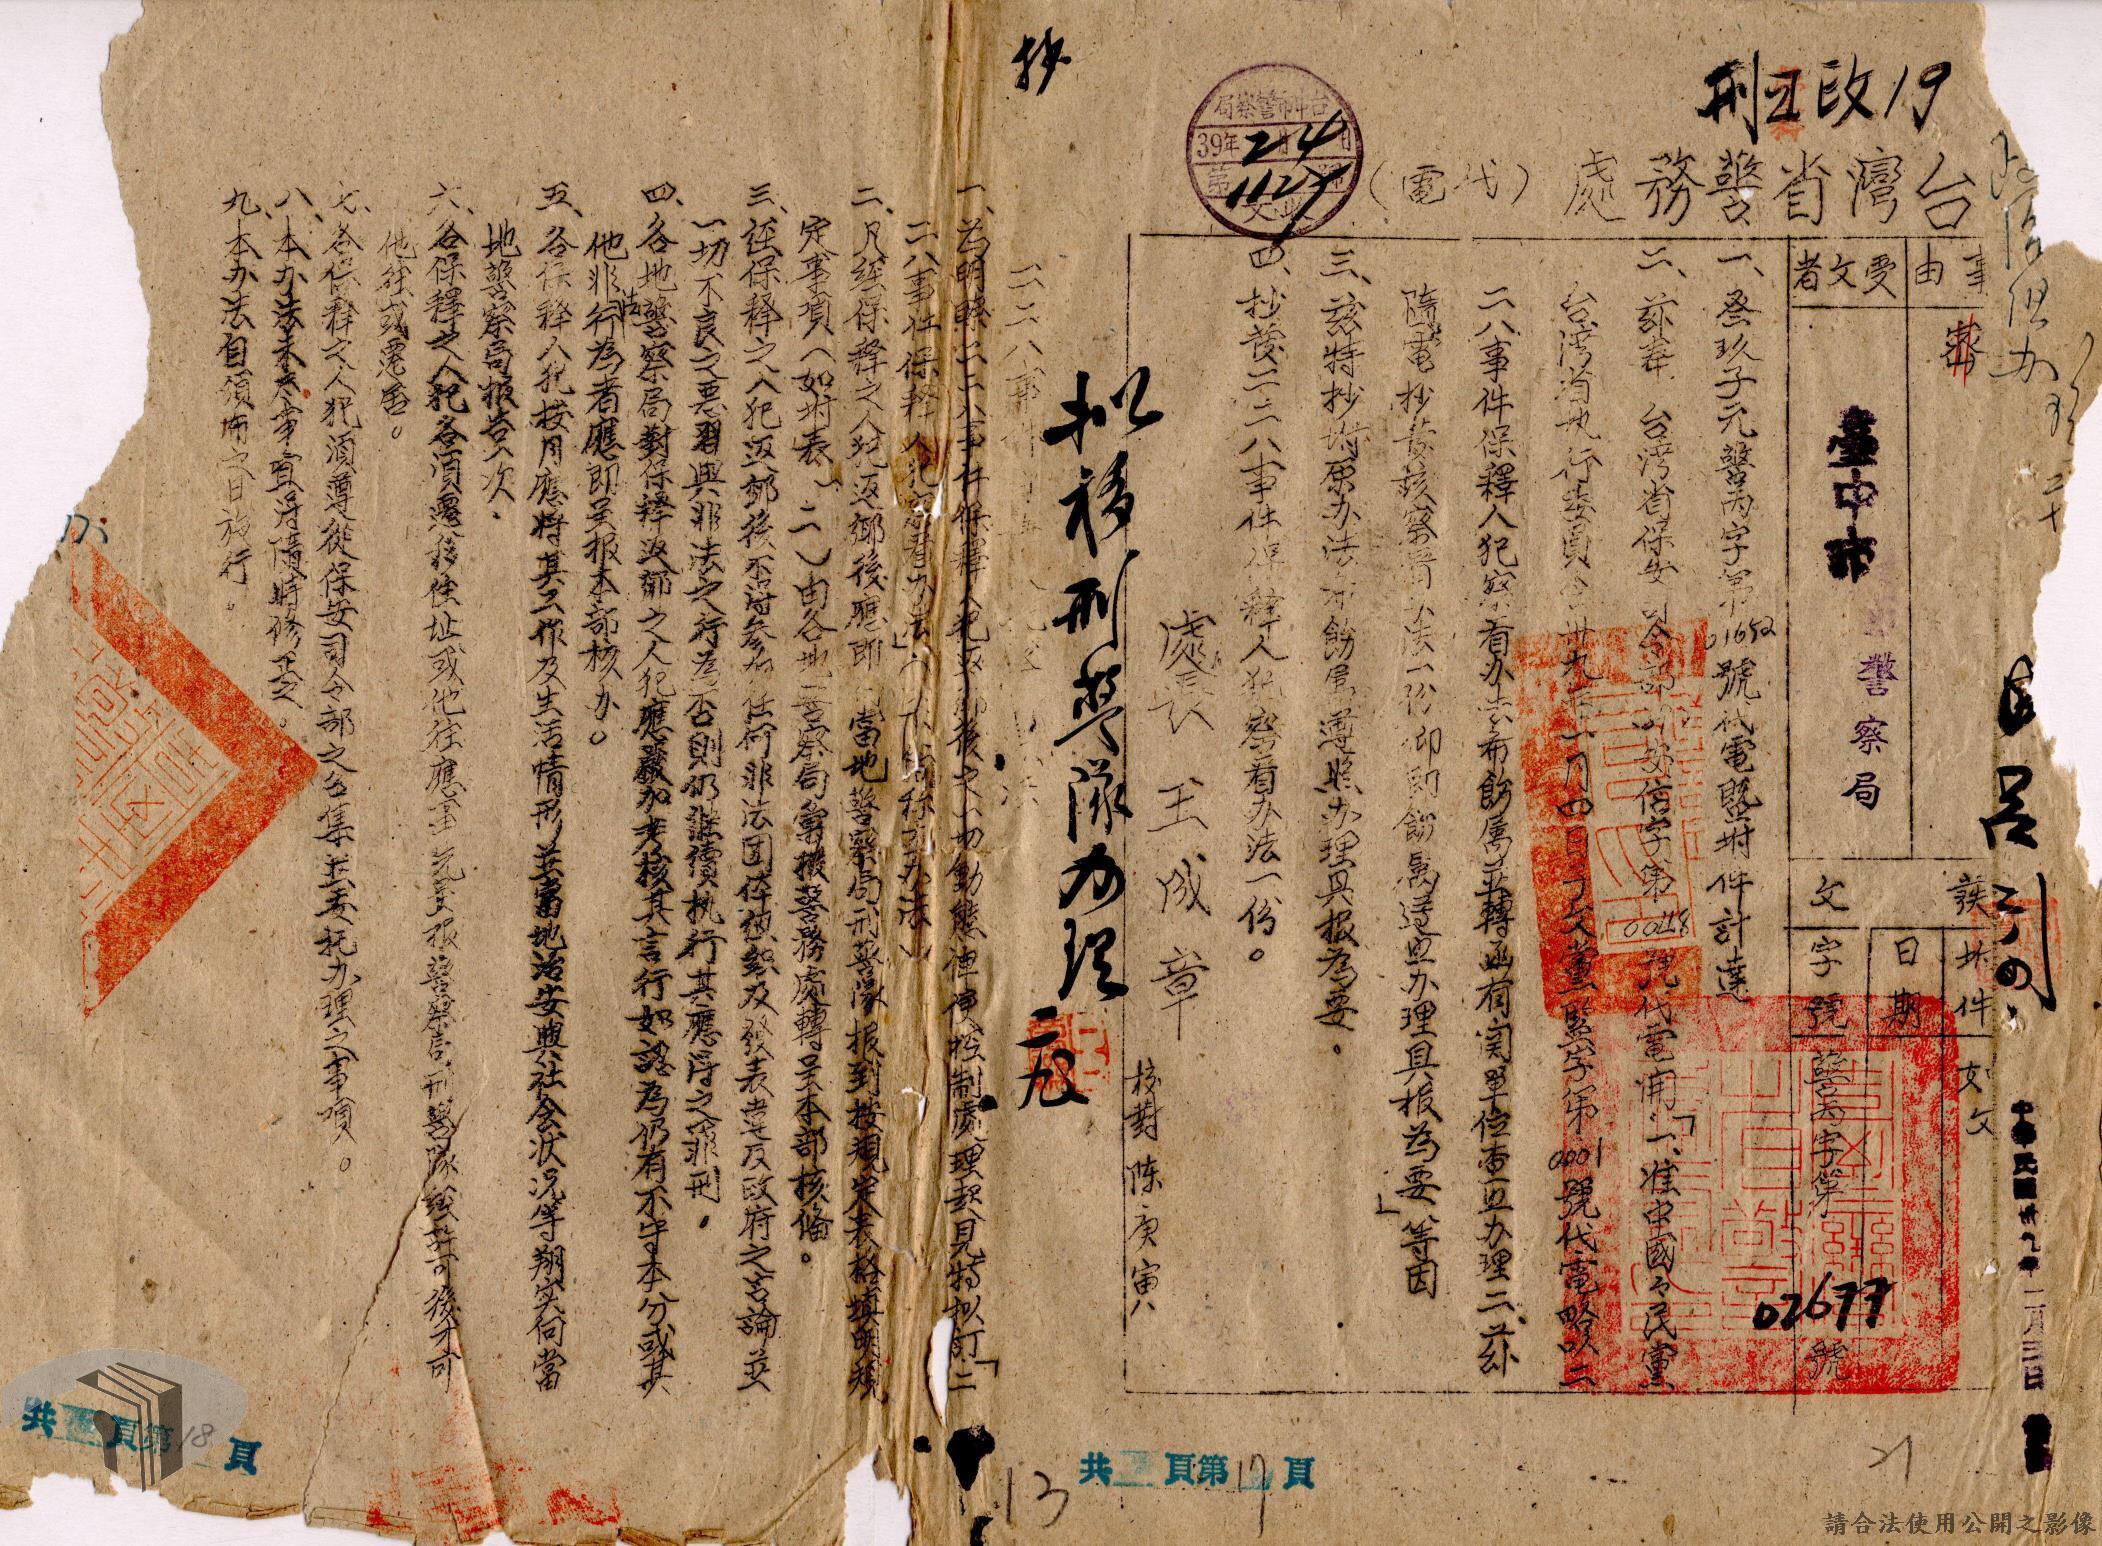 刑正政19
台灣省警務處（代電）
台中市警察局
39年2月4日
第1127號
收文
事由
受文者
臺中市警察局
附件
如文
日期
中華民國卅九年二月三日
文字號
警丙字第02677號
一、查玖子元警丙字第01652號代電暨附件計達
二、茲奉 台灣省保安司令部 安信字第0048號代電開「一、准中國國民黨
台灣省執行委員會卅九年一月四日 黨監字第0001號代電略以二
二八事件保釋人犯察看办法希飭属並轉函有関單位查照办理二、茲
隨電抄發該察看办法一份仰即飭属遵照办理具报為要」等因
三、茲特抄附原办法希飭属遵照办理具报為要。
四、抄發二二八事件保釋人犯察看办法一份。
處長 王成章
校對 陈庚寅
擬移刑警隊办理
抄
二二八事件
一、為明瞭二二八事件保釋人犯返鄉後之一切動態俾便控制處理起見特拟訂「二
二八事件保釋人犯察看办法」（以下簡称本办法）
二、凡經保釋之人犯返鄉後應即 當地警察局刑警隊报到按規定表格填明規
定事項（如附表 二）由各地警察局彙報警務處轉呈本部核备。
三、經保釋之人犯返鄉後不得参加任何非法團体組織及發表違反政府之言論並
一切不良之惡習與非法之行為否則仍繼續执行其應得之罪刑。
四、各地警察局對保釋返鄉之人犯應嚴加考核其言行如認為仍有不守本分或其
他非法行為者應即呈报本部核办。
五、各保釋人犯按月應將其工作及生活情形並當地治安與社会状況等翔实向當
地警察局报告一次、
六、各保釋之人犯各須遷移住址或他往應 先呈报警察局刑警隊經許可後才可
他往或遷居。
七、各保釋之人犯須尊從保安司令部之召集並委托办理之事項。
八、本办法未尽事宜得隨時修正之。
九、本办法自頒布之日施行。
13
共 頁第17頁
共 頁第18頁
21
請合法使用公開之影像